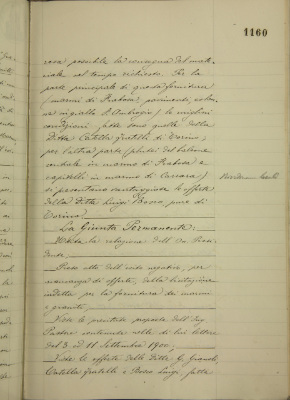 1160
rese possibile la consegna del mate-
riale nel tempo richiesto. Per la
parte principale di questa fornitura
(marmi di Frabosa, pavimenti,
di S. Ambrogio) le migliori
condizioni fatte sono quelle della
Ditta Catella fratelli di Torino;
per l'altra parte
in marmo di Frabosa e
capitelli in marmo di Carrara)
si presentano vantaggiose le offerte
della Ditta Luigi Bosco, pure di
Torino.
La Giunta Permanente
Udita la relazione dell'On. Presi-
dente,
Preso atto dell'esito negativo, per
mancanza di offerte, della licitazione
indetta per la fornitura dei marmi
e graniti,
Viste le proposte dell'Ing.
contenute nelle di lui lettere
del 3 ed 11 Settembre 1900,
Viste le offerte delle Ditte G.
Catella fratelli e Bosco Luigi fatte